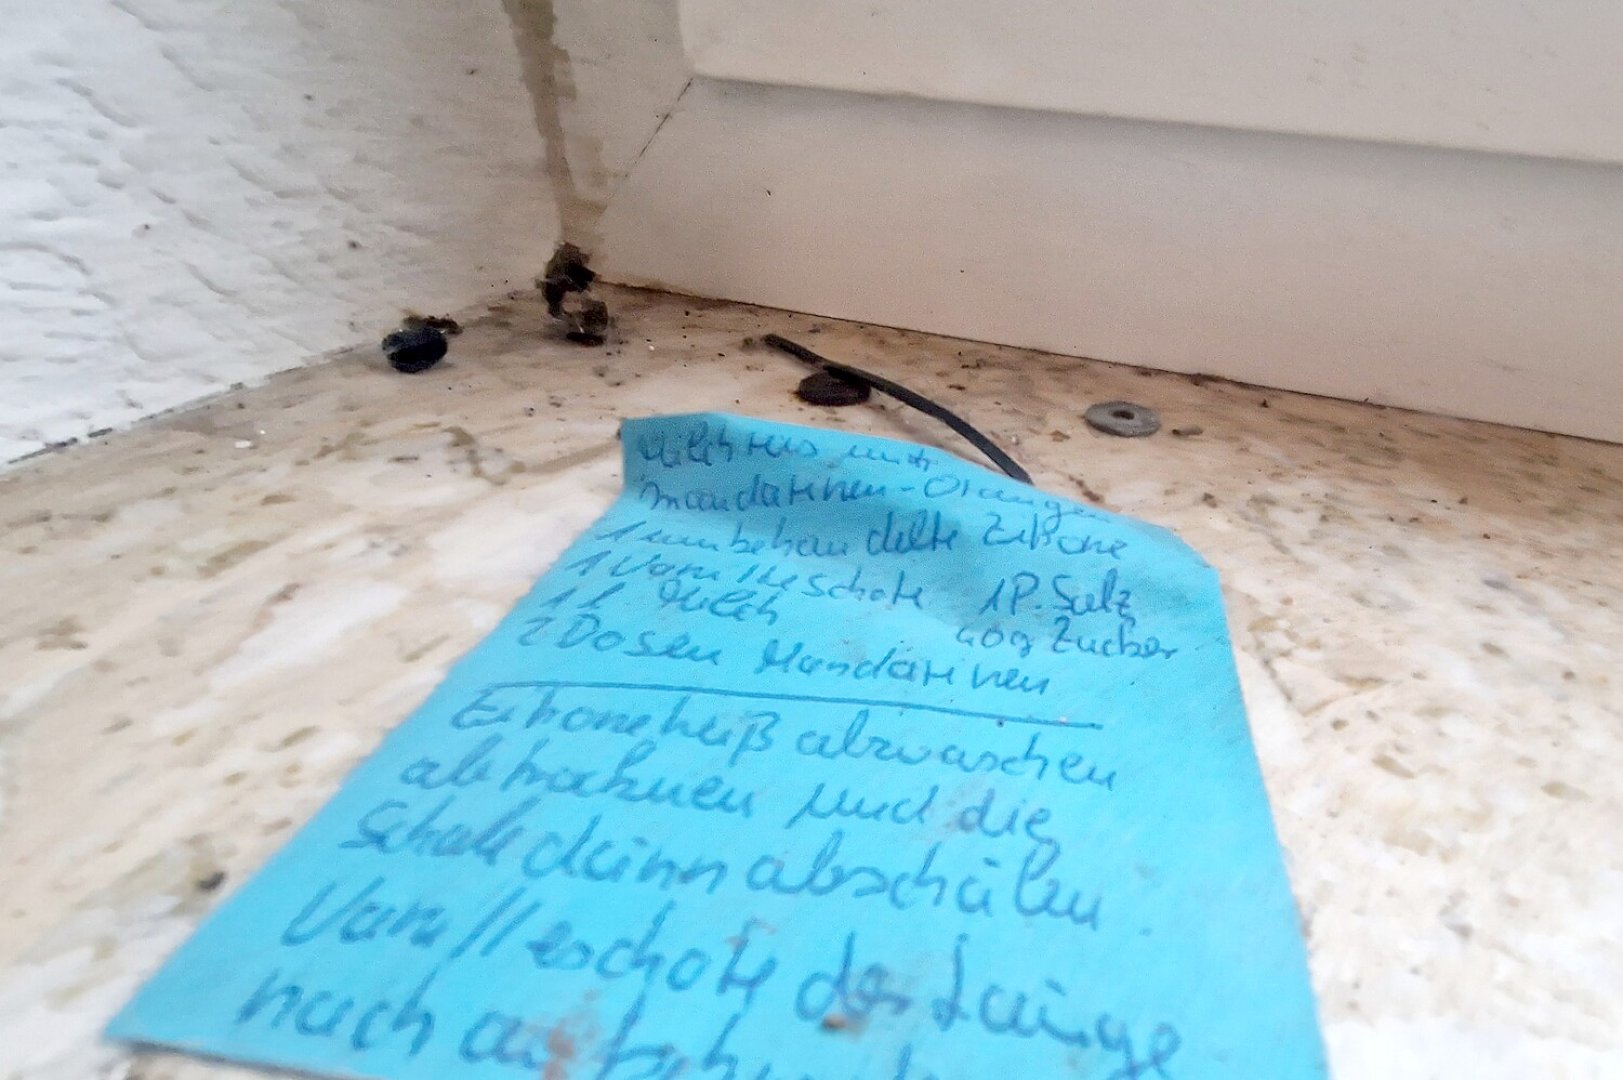 Milchreis mit
Mandarinen-Orangen
1 unbehandelte Zitrone
1 Vanilleschote 1P. Salz
1 l Milch 40g Zucker
2 Dosen Mandarinen
Zitrone heiß abwaschen
abtrocknen und die
Schale dünn abschälen
Vanilleschote der Länge
nach